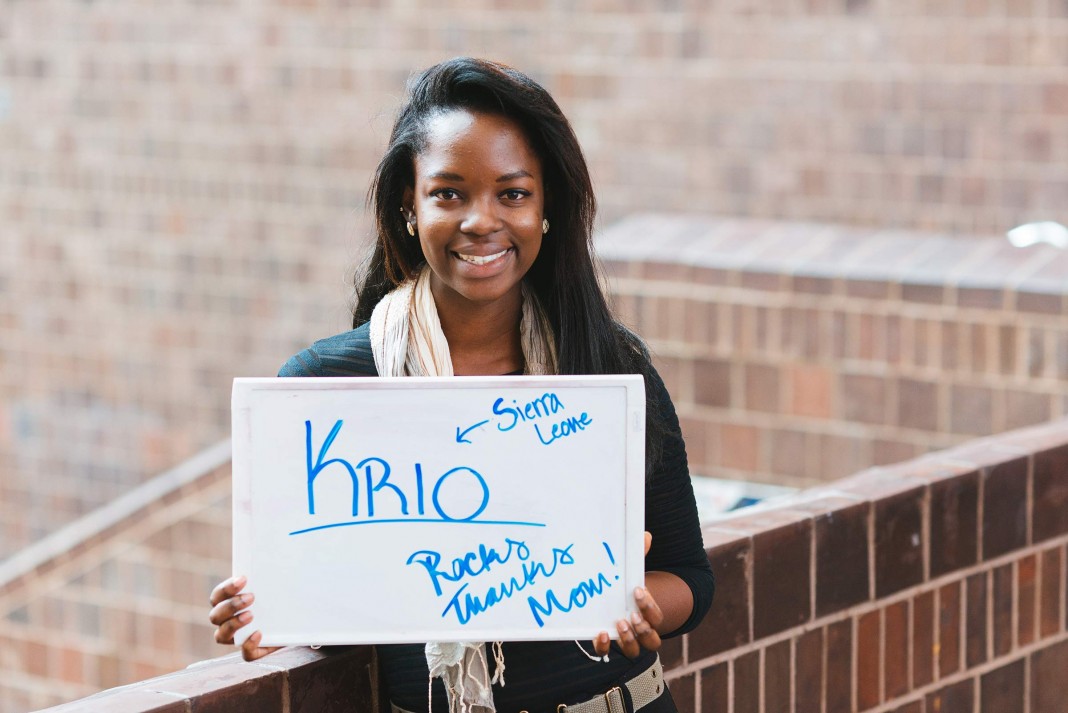 Sierra
Leone
KRIO
Rocks
Thanks
Mom!